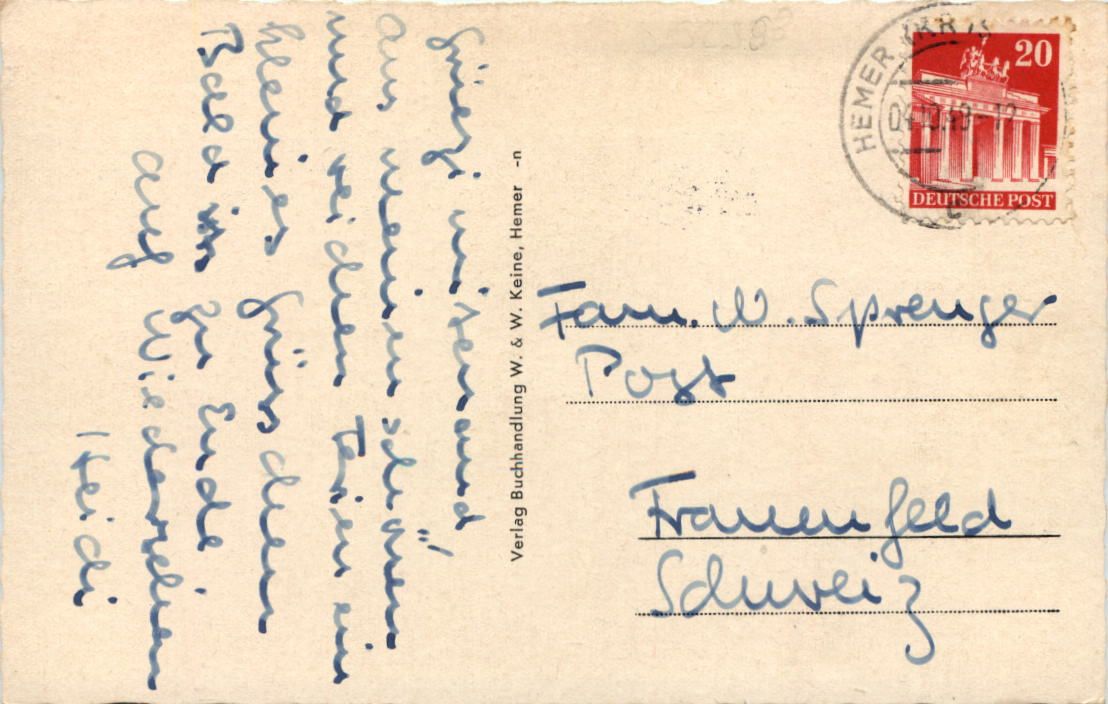 Grüezi mitenand"
Aus meinen schönen
und reichen Ferien ein
kleines Grüsschen
Bald ist zu Ende
auf Wiedersehen
Heidi
Verlag Buchhandlung W. & W. Keine, Hemer -n
HEMER (KR IS
04.10.49-12
c
20
DEUTSCHE POST
Fam. W. Sprenger
Post
Frauenfeld
Schweiz